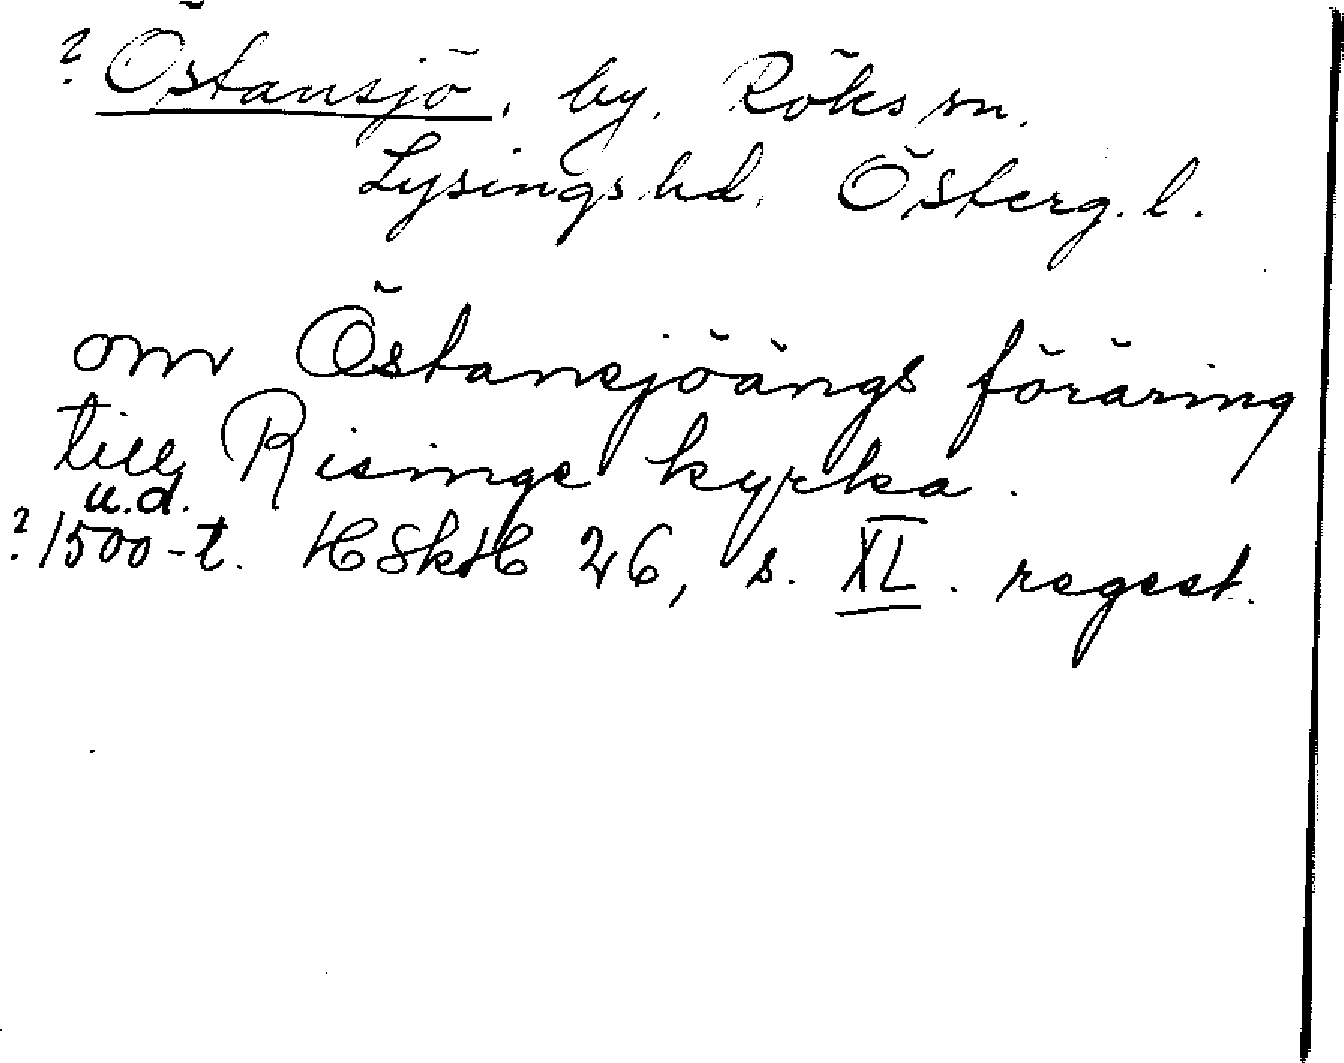 ? Östansjö, by, Röks sn.
Lysings hd. Österg. l.
om Östansjöängs föräring
till Risinge kyrka.
u.d.
? 1500-t. HSkH 26, s. XL. regest.